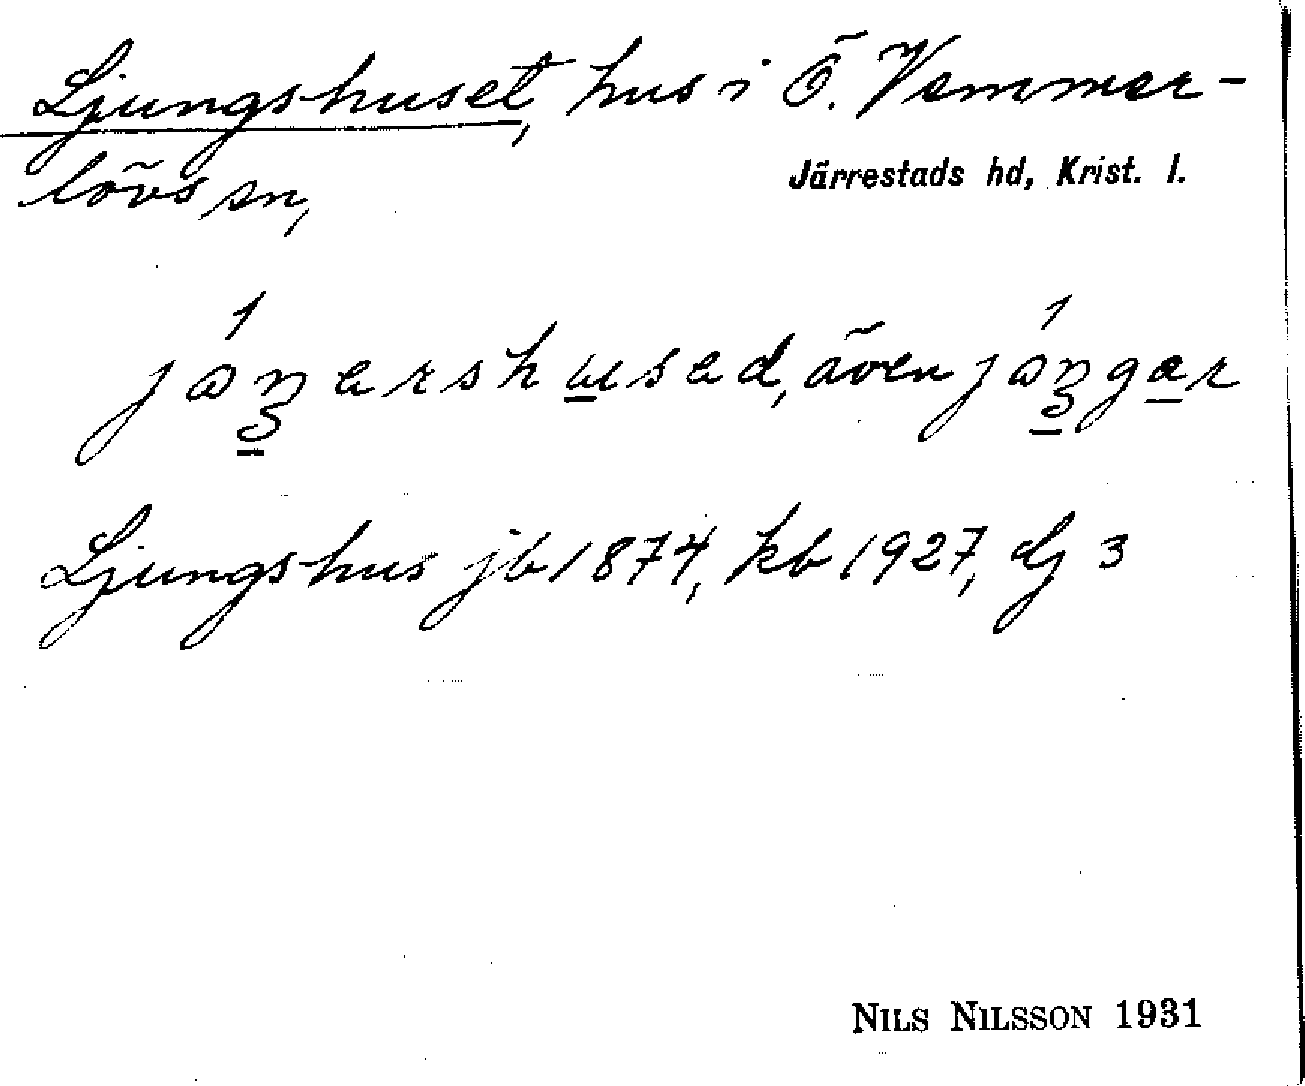 Ljungshuset, hus i Ö. Vemmer-
lövs sn,
Järrestads hd, Krist. l.
jáŋershused, även jáŋgar
Ljungshus jb 1874, kb 1927, dj 3
NILS NILSSON 1931